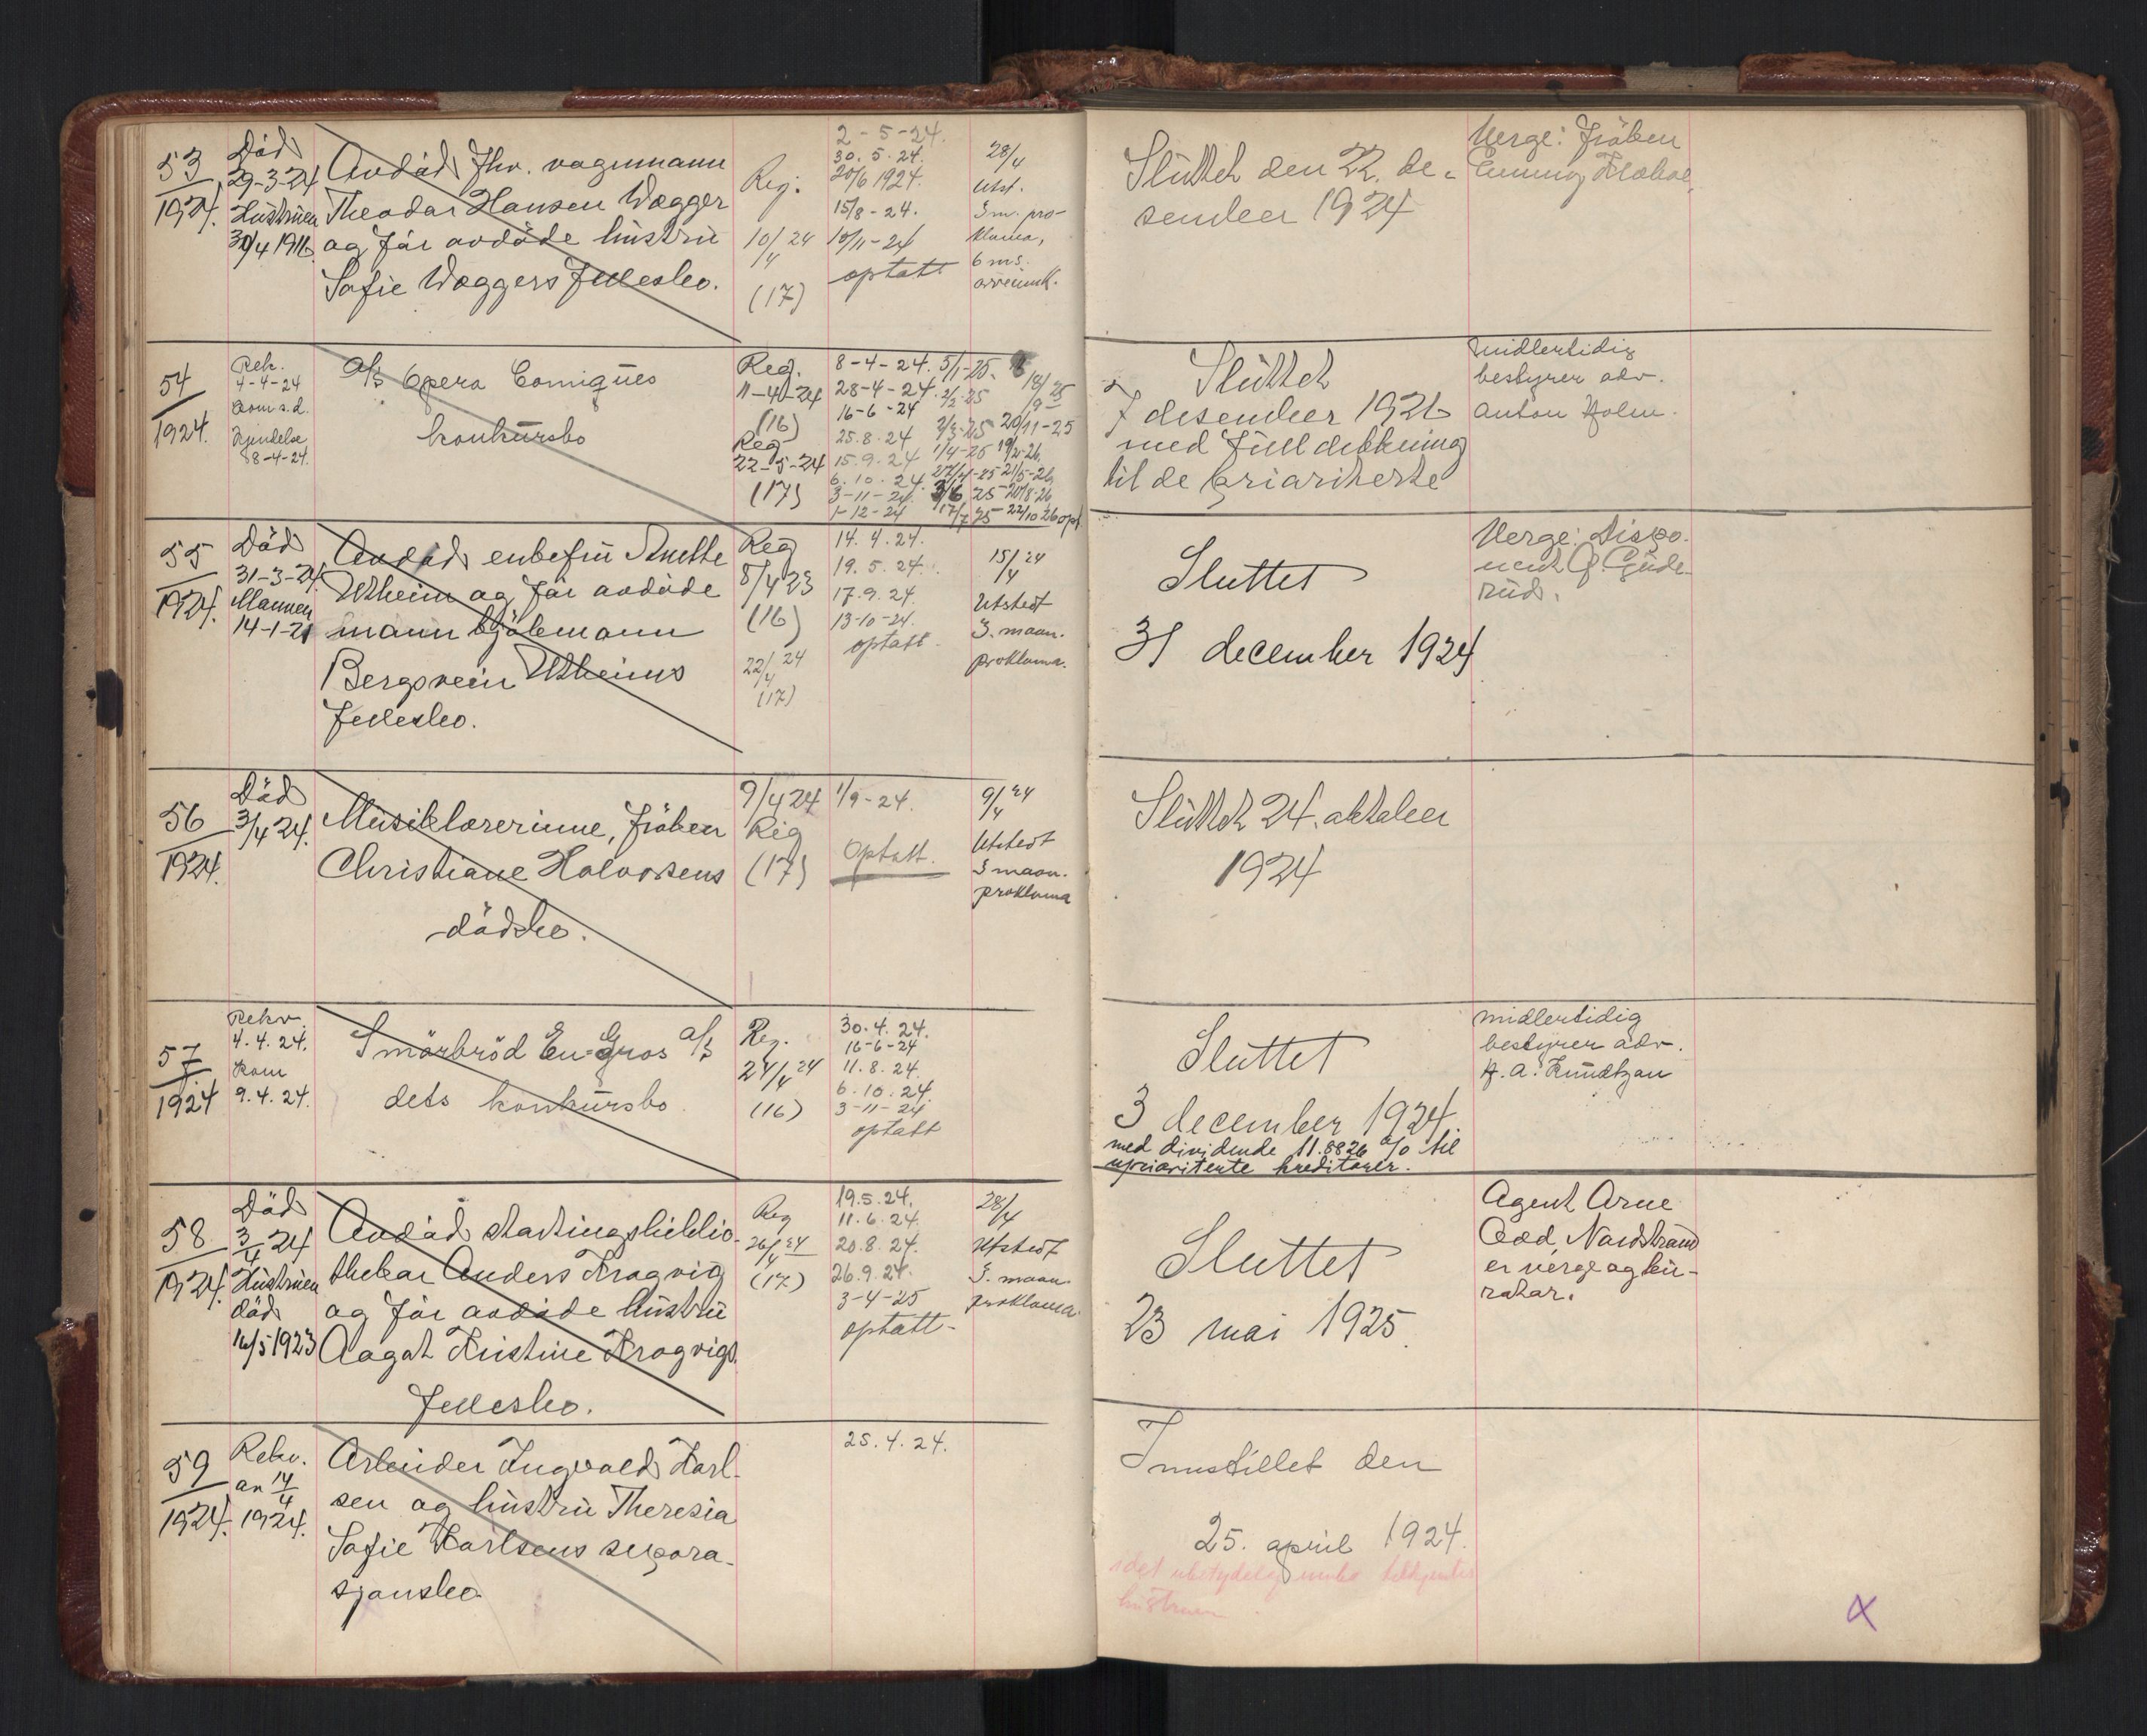 53
1924.
Död
29-3-24
Hustruen
30/4 1916.
Avdöd Fhv. vognmann
Theodor Hansen Wægger
og før avdøde hustru
Sofie Wæggers Fellesbo.
Reg.
10/4 24
(17)
2-5-24.
30.5.24.
20/6 1924.
15/8-24.
10/11-24
optatt
28/4
Utst.
3 m. pro-
klama,
6 ms.
Sluttet den 22. de-
sember 1924
Verge: Frøken
54
1924.
Rek.
4-4-24
Kjendelse
8-4-24.
A/S Opera Comiques
konkursbo
Reg.
11-4-24
(16)
Reg
22-5-24
(17)
8-4-24. 5/1-25.
28-4-24. 2/2-25
16-6-24
25.8.24 2/3-25 20/11-25
15.9.24 1/4-25
6.10.24.
3-11-24.
1-12-24
Sluttet
7 desember 1926
med Full dekkning
til de prioriterte
midlertidig
bestyrer adv.
Anton Holm.
55
1924.
Död
31-3-24.
Mannen
14-1-21
Avdöd enkefru Anette
Utheim og før avdøde
mann kjøbmann
Bergsvein Utheims
Fellesbo.
Reg
8/4 23
(16)
22/4 24
(17)
14.4.24.
19.5.24.
17.9.24.
13-10-24.
optatt.
15/4 24
Utstedt
3. maan.
proklama.
Sluttet
31 december 1924
Verge: Dispo-
nent G. Gude-
rud.
56
1924.
Död
3/4 24.
Musiklærerinne, frøken
Christiane Halvorsens
dødsbo.
9/4 24
Reg
(17)
1/9-24.
Optatt.
9/4 24
Utstedt
3 maan.
proklama
Sluttet 24. oktober
1924
57
1924
Rekv.
4.4.24.
Kom
9.4.24.
Smörbröd En-Gros A/S
dets konkursbo.
Reg.
24/4 24
(16)
30.4.24.
16-6-24
11.8.24.
6.10.24.
3-11-24
optatt
Sluttet
3 december 1924.
med dividende 11.8826 % til
uprioriterte kreditorer.
midlertidig
bestyrer adv.
H.A. Knudtzon
58
1924.
Död
3/4 24
Hustruen
död
16/5 1923
Avdöd stortingsbiblio-
thekar Anders Krogvig
og før avdøde hustru
Aagot Kristine Krogvigs
Fellesbo.
Reg
26/4 24
(17)
19.5.24.
11.6.24.
20.8.24.
26.9.24.
3-4-25
optatt-
28/4
Utstedt
3. maan.
proklama.
Sluttet
23 mai 1925.
Agent Arne
Aas, Nordstrand
er verge og ku-
rator.
59
1924.
Rekv.
av 14/4
1924.
Arbeider Ingvald Karl-
sen og hustru Theresia
Sofie Karlsens separa-
sjonsbo.
25.4.24.
Innstillet den
25. april 1924.
hustruen
x